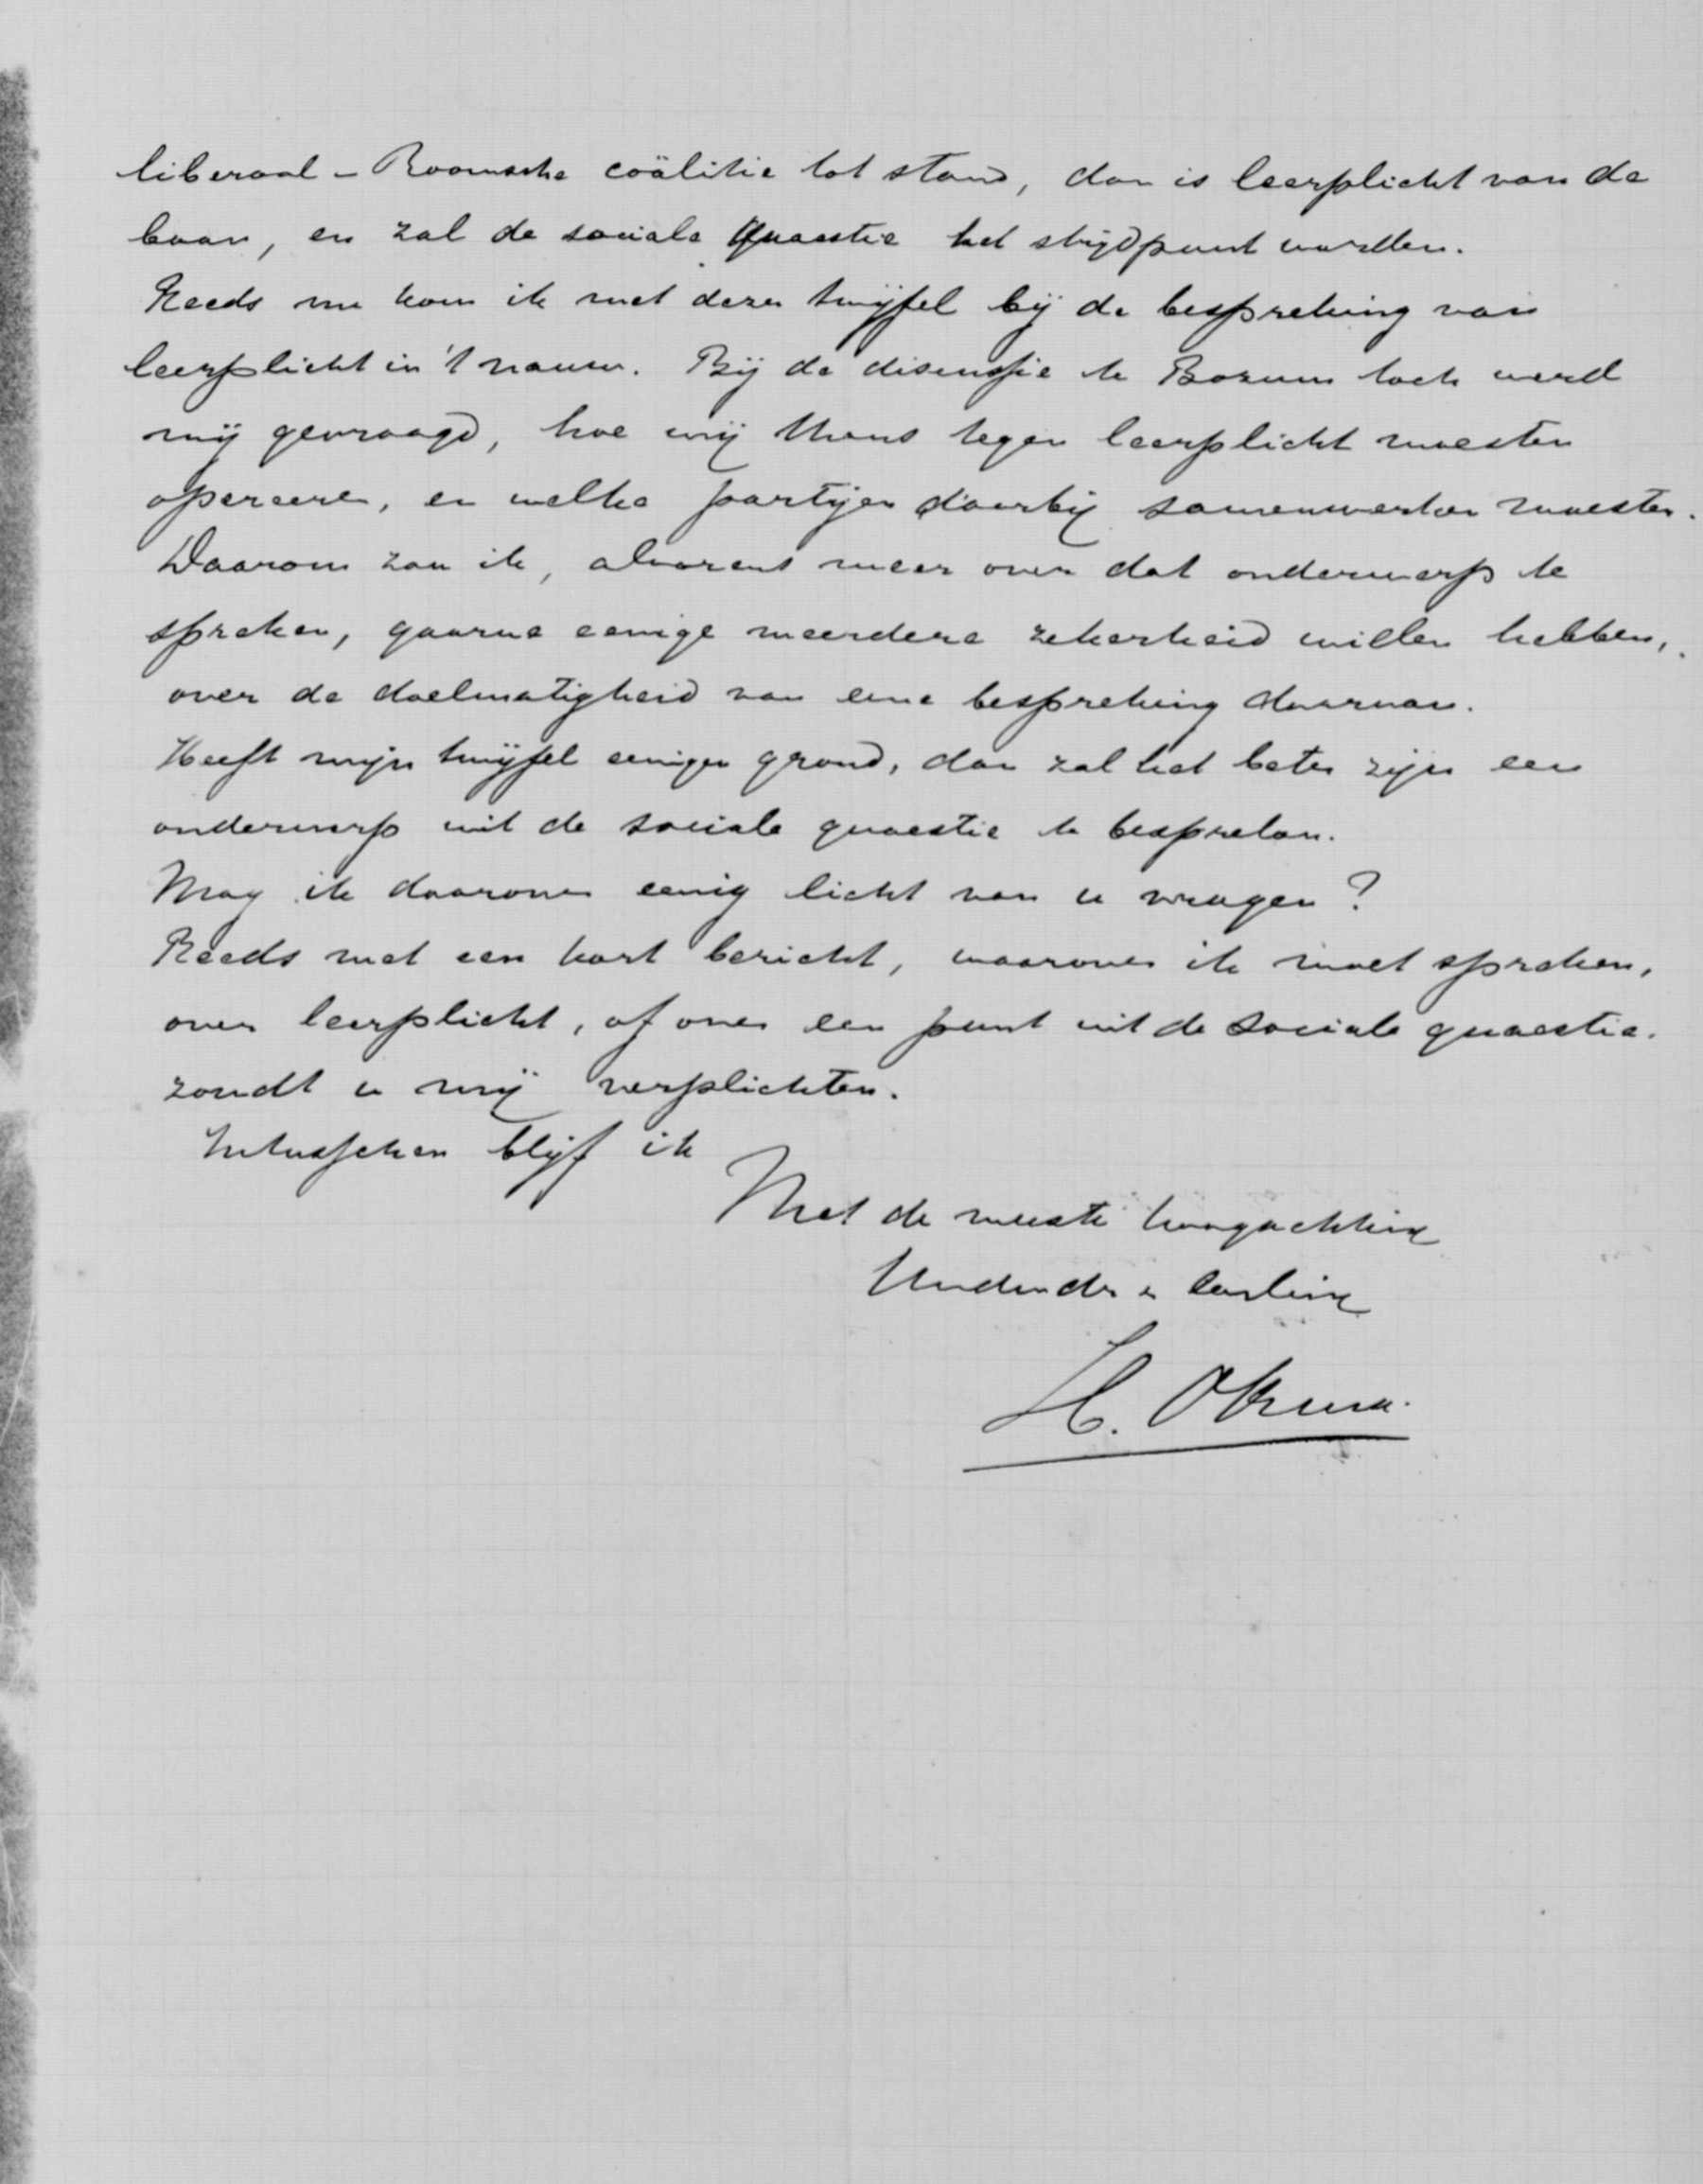 liberaal - Roomsche coälitie tot stand, dan is leerplicht van de
baan, en zal de sociale quaestie het strijdpunt worden.
Reeds nu kom ik met dezen twijfel bij de bespreking van
leerplicht in 't nauw. Bij de discussie te Bozum toch werd
mij gevraagd, hoe wij thans tegen leerplicht moesten
opereeren, en welke partijen daarbij samenwerken moesten.
Daarom zou ik, alvorens meer over dat onderwerp te
spreken, gaarne eenige meerdere zekerheid willen hebben,
over de doelmatigheid van eene bespreking daarvan.
Heeft mijn twijfel eenigen grond, dan zal het beter zijn een
onderwerp uit de sociale quaestie te bespreken.
Mag ik daarover eenig licht van u vragen?
Reeds met een kort bericht, waarover ik moet spreken,
over leerplicht, of over een punt uit de sociale quaestie.
zoudt u mij verplichten.
Intusschen blijf ik
Met de meeste hoogachting
H.